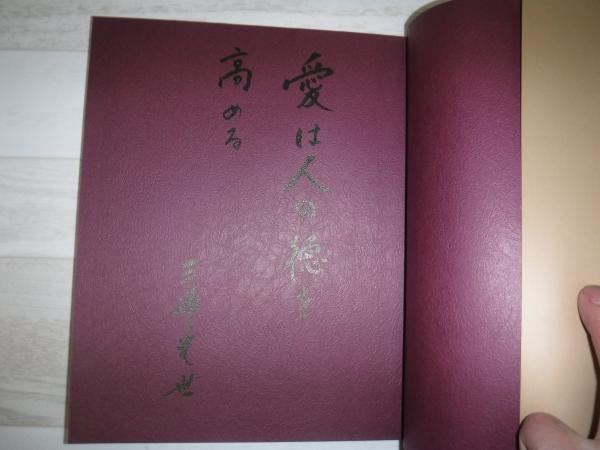 愛は人の徳を
高める
三浦光世